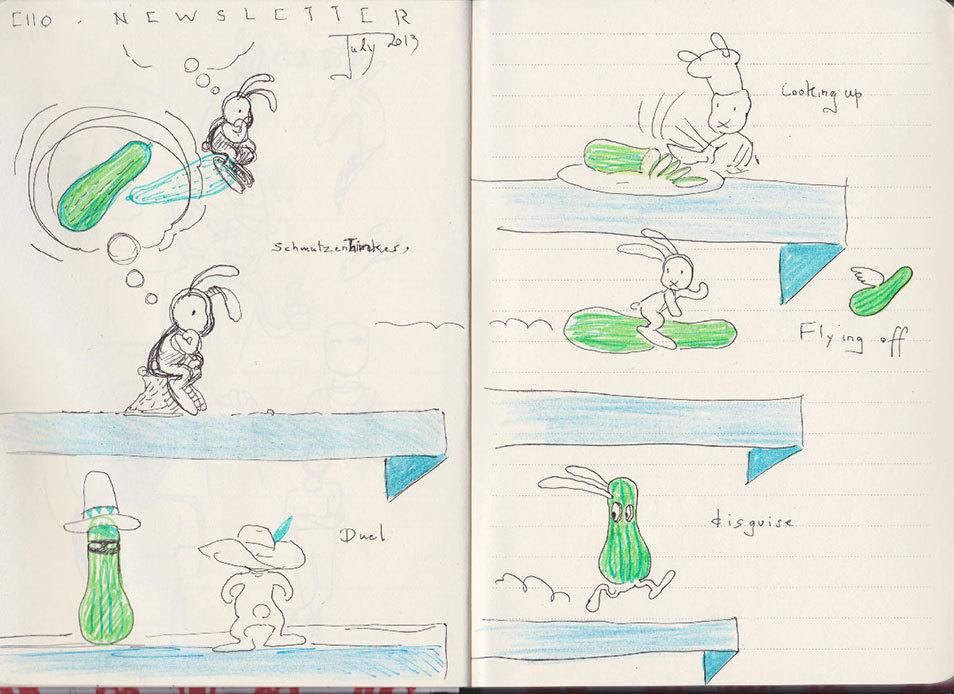 Ello . NEWSLETTER
July 2013
SchmutzenThinker,
Duel
Cooking up
Flying off
disguise